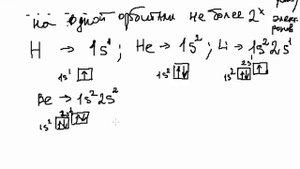 на одной орбитали не более 2ˣ элек
тронов
H → 1s¹ ; He → 1s² ; Li → 1s² 2s¹
1s¹ ↑ 1s² ↑↓ 1s² ↑↓ 2s¹ ↑
Be → 1s² 2s²
1s² ↑↓ 2s² ↑↓